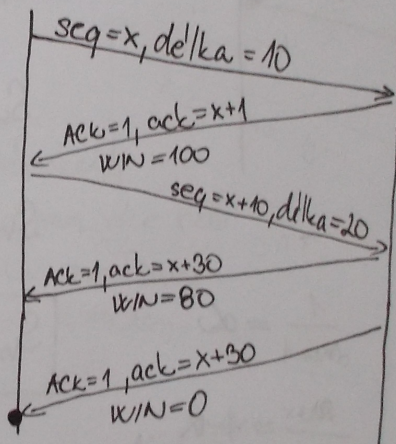 seq=x, délka=10
ACK=1, ack=x+1
WIN=100
seq=x+10, délka=20
ACK=1, ack=x+30
WIN=80
ACK=1, ack=x+30
WIN=0